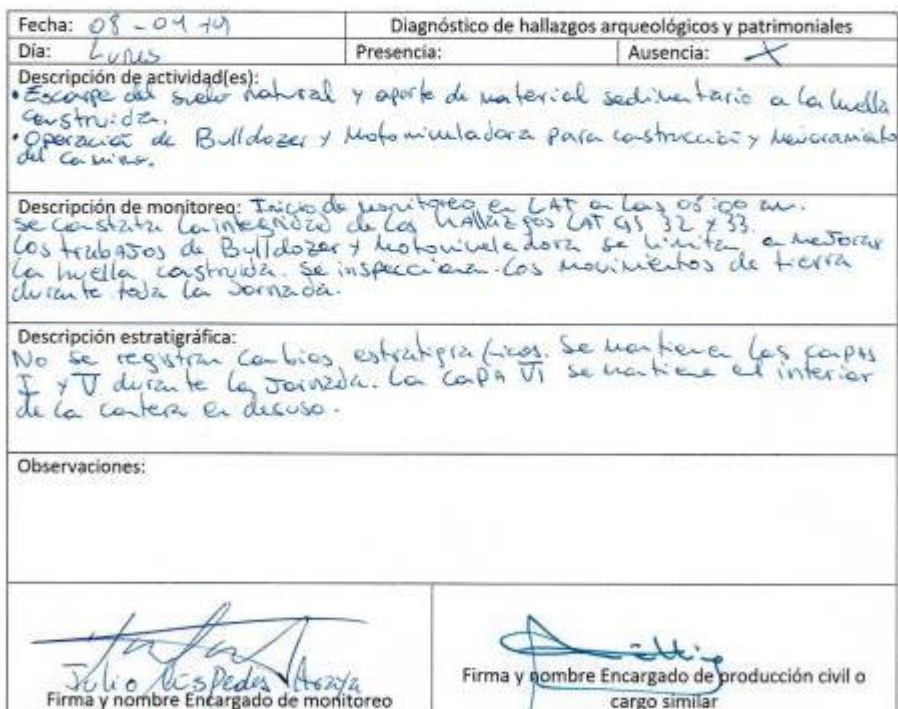 Fecha: 08-04-19 Diagnóstico de hallazgos arqueológicos y patrimoniales
Día: Lunes Presencia: Ausencia: X
Descripción de actividad(es):
• Escarpe del suelo natural y aporte de material sedimentario a la huella
construida.
• Operación de Bulldozer y Motoniveladora para construcción y mejoramiento
del camino.
Descripción de monitoreo: Inicio de monitoreo en LAT a las 08:00 am.
Se constata la integridad de los Hallazgos LAT GS 32 y 33.
Los trabajos de Bulldozer y Motoniveladora se limitan a mejorar
la huella construida. Se inspeccionan los movimientos de tierra
durante toda la Jornada.
Descripción estratigráfica:
No se registran cambios estratigráficos. Se mantienen las capas
I y V durante la Jornada. La capa VI se mantiene al interior
de la cantera en desuso.
Observaciones:
Julio Araya
Firma y nombre Encargado de monitoreo
Firma y nombre Encargado de producción civil o
cargo similar